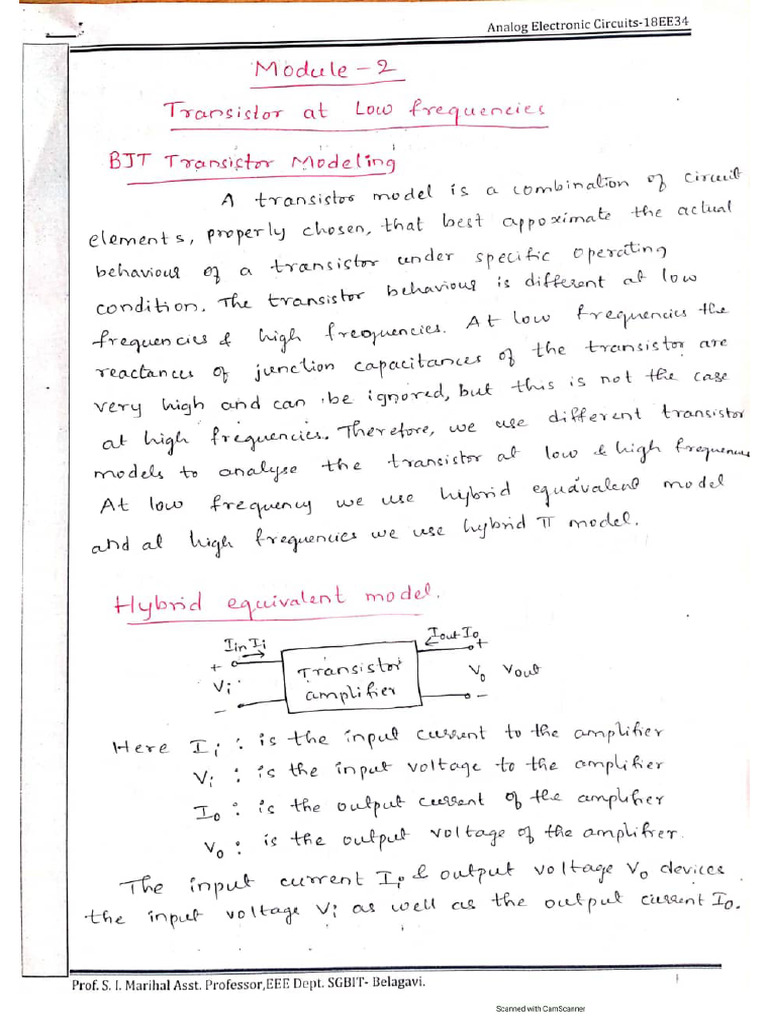 Analog Electronic Circuits-18EE34
Module-2
Transistor at Low frequencies
BJT Transistor Modeling
A transistor model is a combination of circuit
elements, properly chosen, that best appoximate the actual
behaviour of a transistor under specific operating
condition. The transistor behaviour is different at low
frequencies & high frequencies. At low frequencies the
reactances of junction capacitances of the transistor are
very high and can be ignored, but this is not the case
at high frequencies. Therefore, we use different transistor
models to analyse the transistor at low & high frequencies
At low frequency we use hybrid equavalent model
and at high frequencies we use hybrid π model.
Hybrid equivalent model.
Iin Ii
Iout Io
+ Transistor +
Vi amplifier Vo Vout
- -
Here Ii : is the input current to the amplifier
Vi : is the input voltage to the amplifier
Io : is the output current of the amplifier
Vo : is the output voltage of the amplifier.
The input current Ii & output voltage Vo devices
the input voltage Vi as well as the output current Io.
Prof. S. I. Marihal Asst. Professor,EEE Dept. SGBIT- Belagavi.
1
Scanned with CamScanner